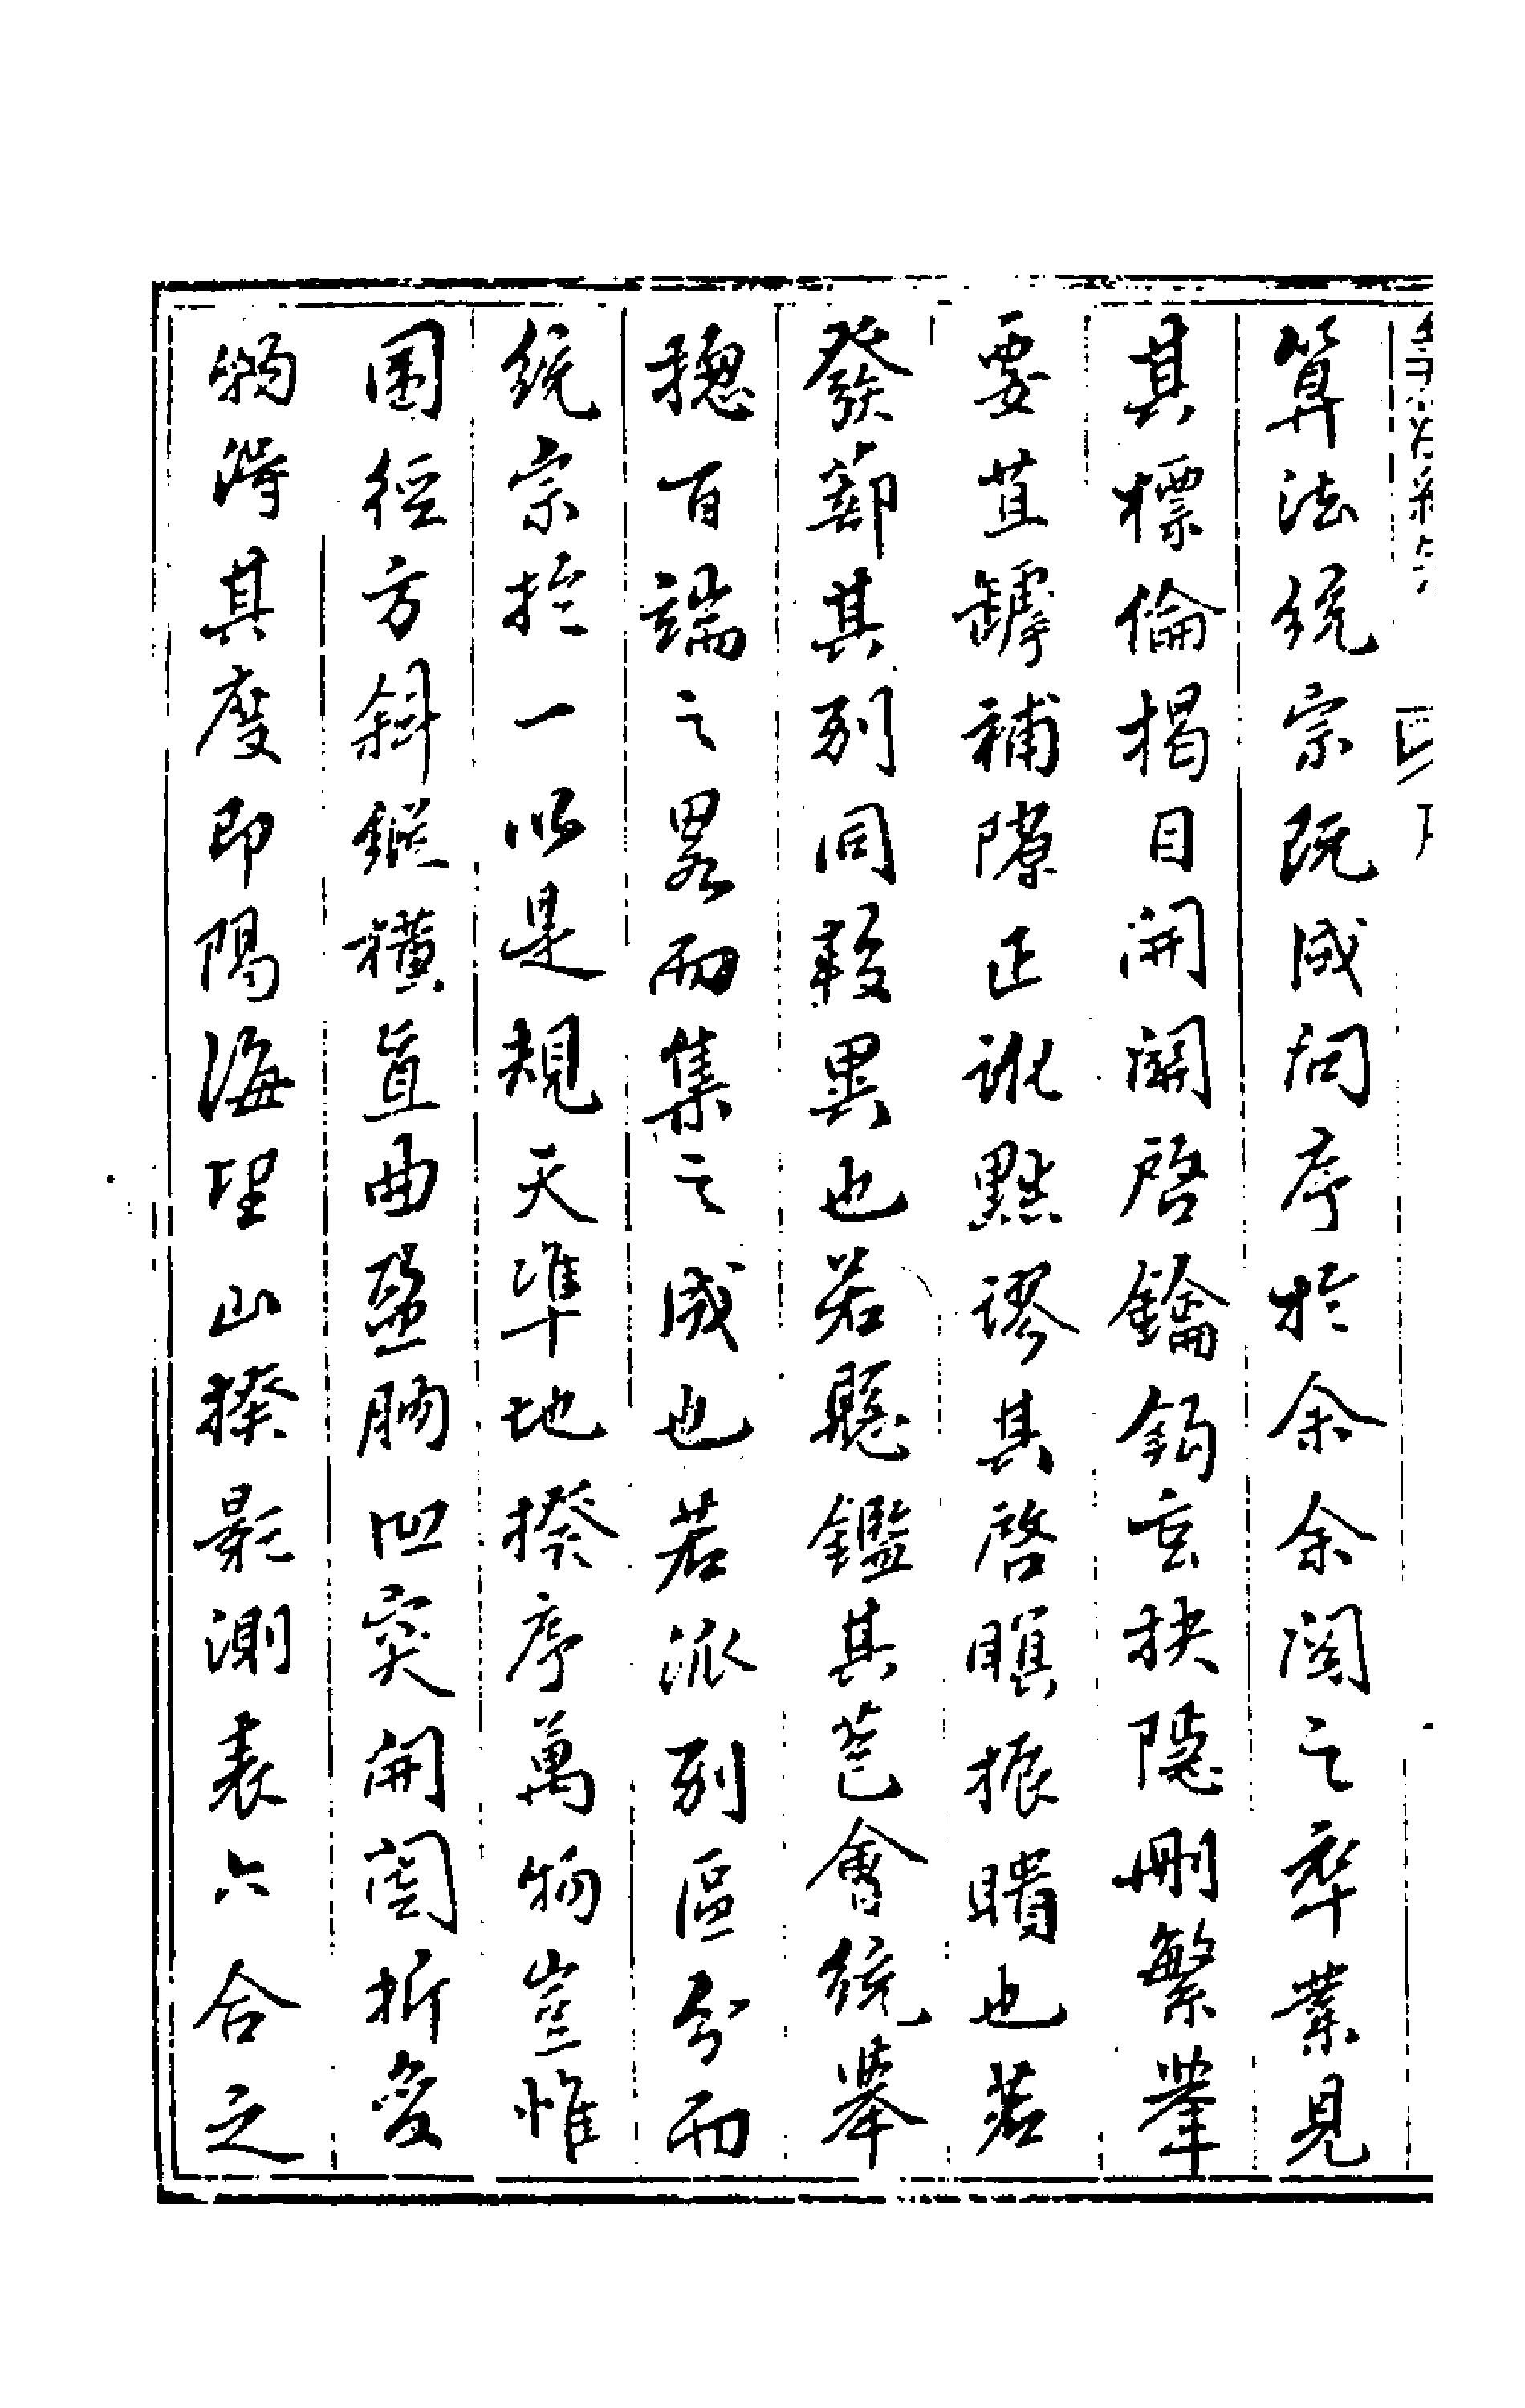 算法統宗
算法統宗既成問序於余余閱之卒業見
其標倫揭目開關啓鑰鈎玄抉隱刪繁舉
要苴罅補隙正訛黜謬其啓瞑振瞶也若
發蔀其別同較異也若懸鑑其苞會統舉
總百端之畧而集之成也若派別區分而
統宗於一以是規天準地揆序萬物豈惟
圍徑方斜縱橫直曲盈朒凹突開闔折變
物得其度即隔海望山揆影測表六合之